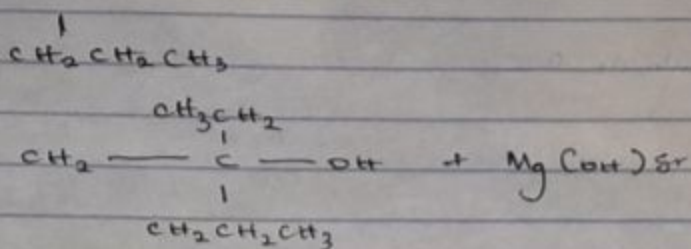 CH2 CH2 CH3
CH3CH2
CH2 — C — OH + Mg (OH) Br
CH2 CH2 CH3